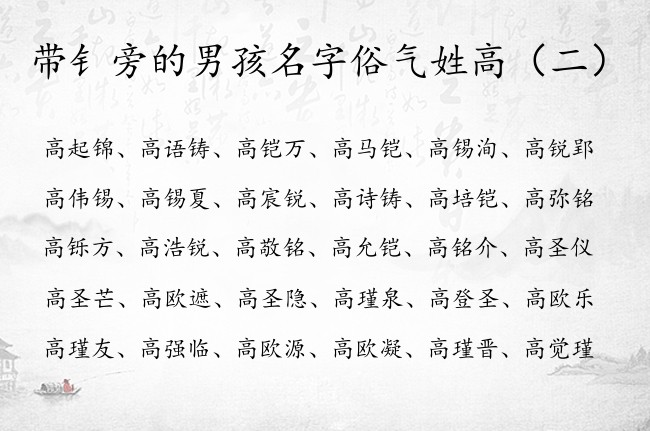 带钅旁的男孩名字俗气姓高（二）
高起锦、高语铸、高铠万、高马铠、高锡洵、高锐郢
高伟锡、高锡夏、高宸锐、高诗铸、高培铠、高弥铭
高铄方、高浩锐、高敬铭、高允铠、高铭介、高圣仪
高圣芒、高欧遮、高圣隐、高瑾泉、高登圣、高欧乐
高瑾友、高强临、高欧源、高欧凝、高瑾晋、高觉瑾